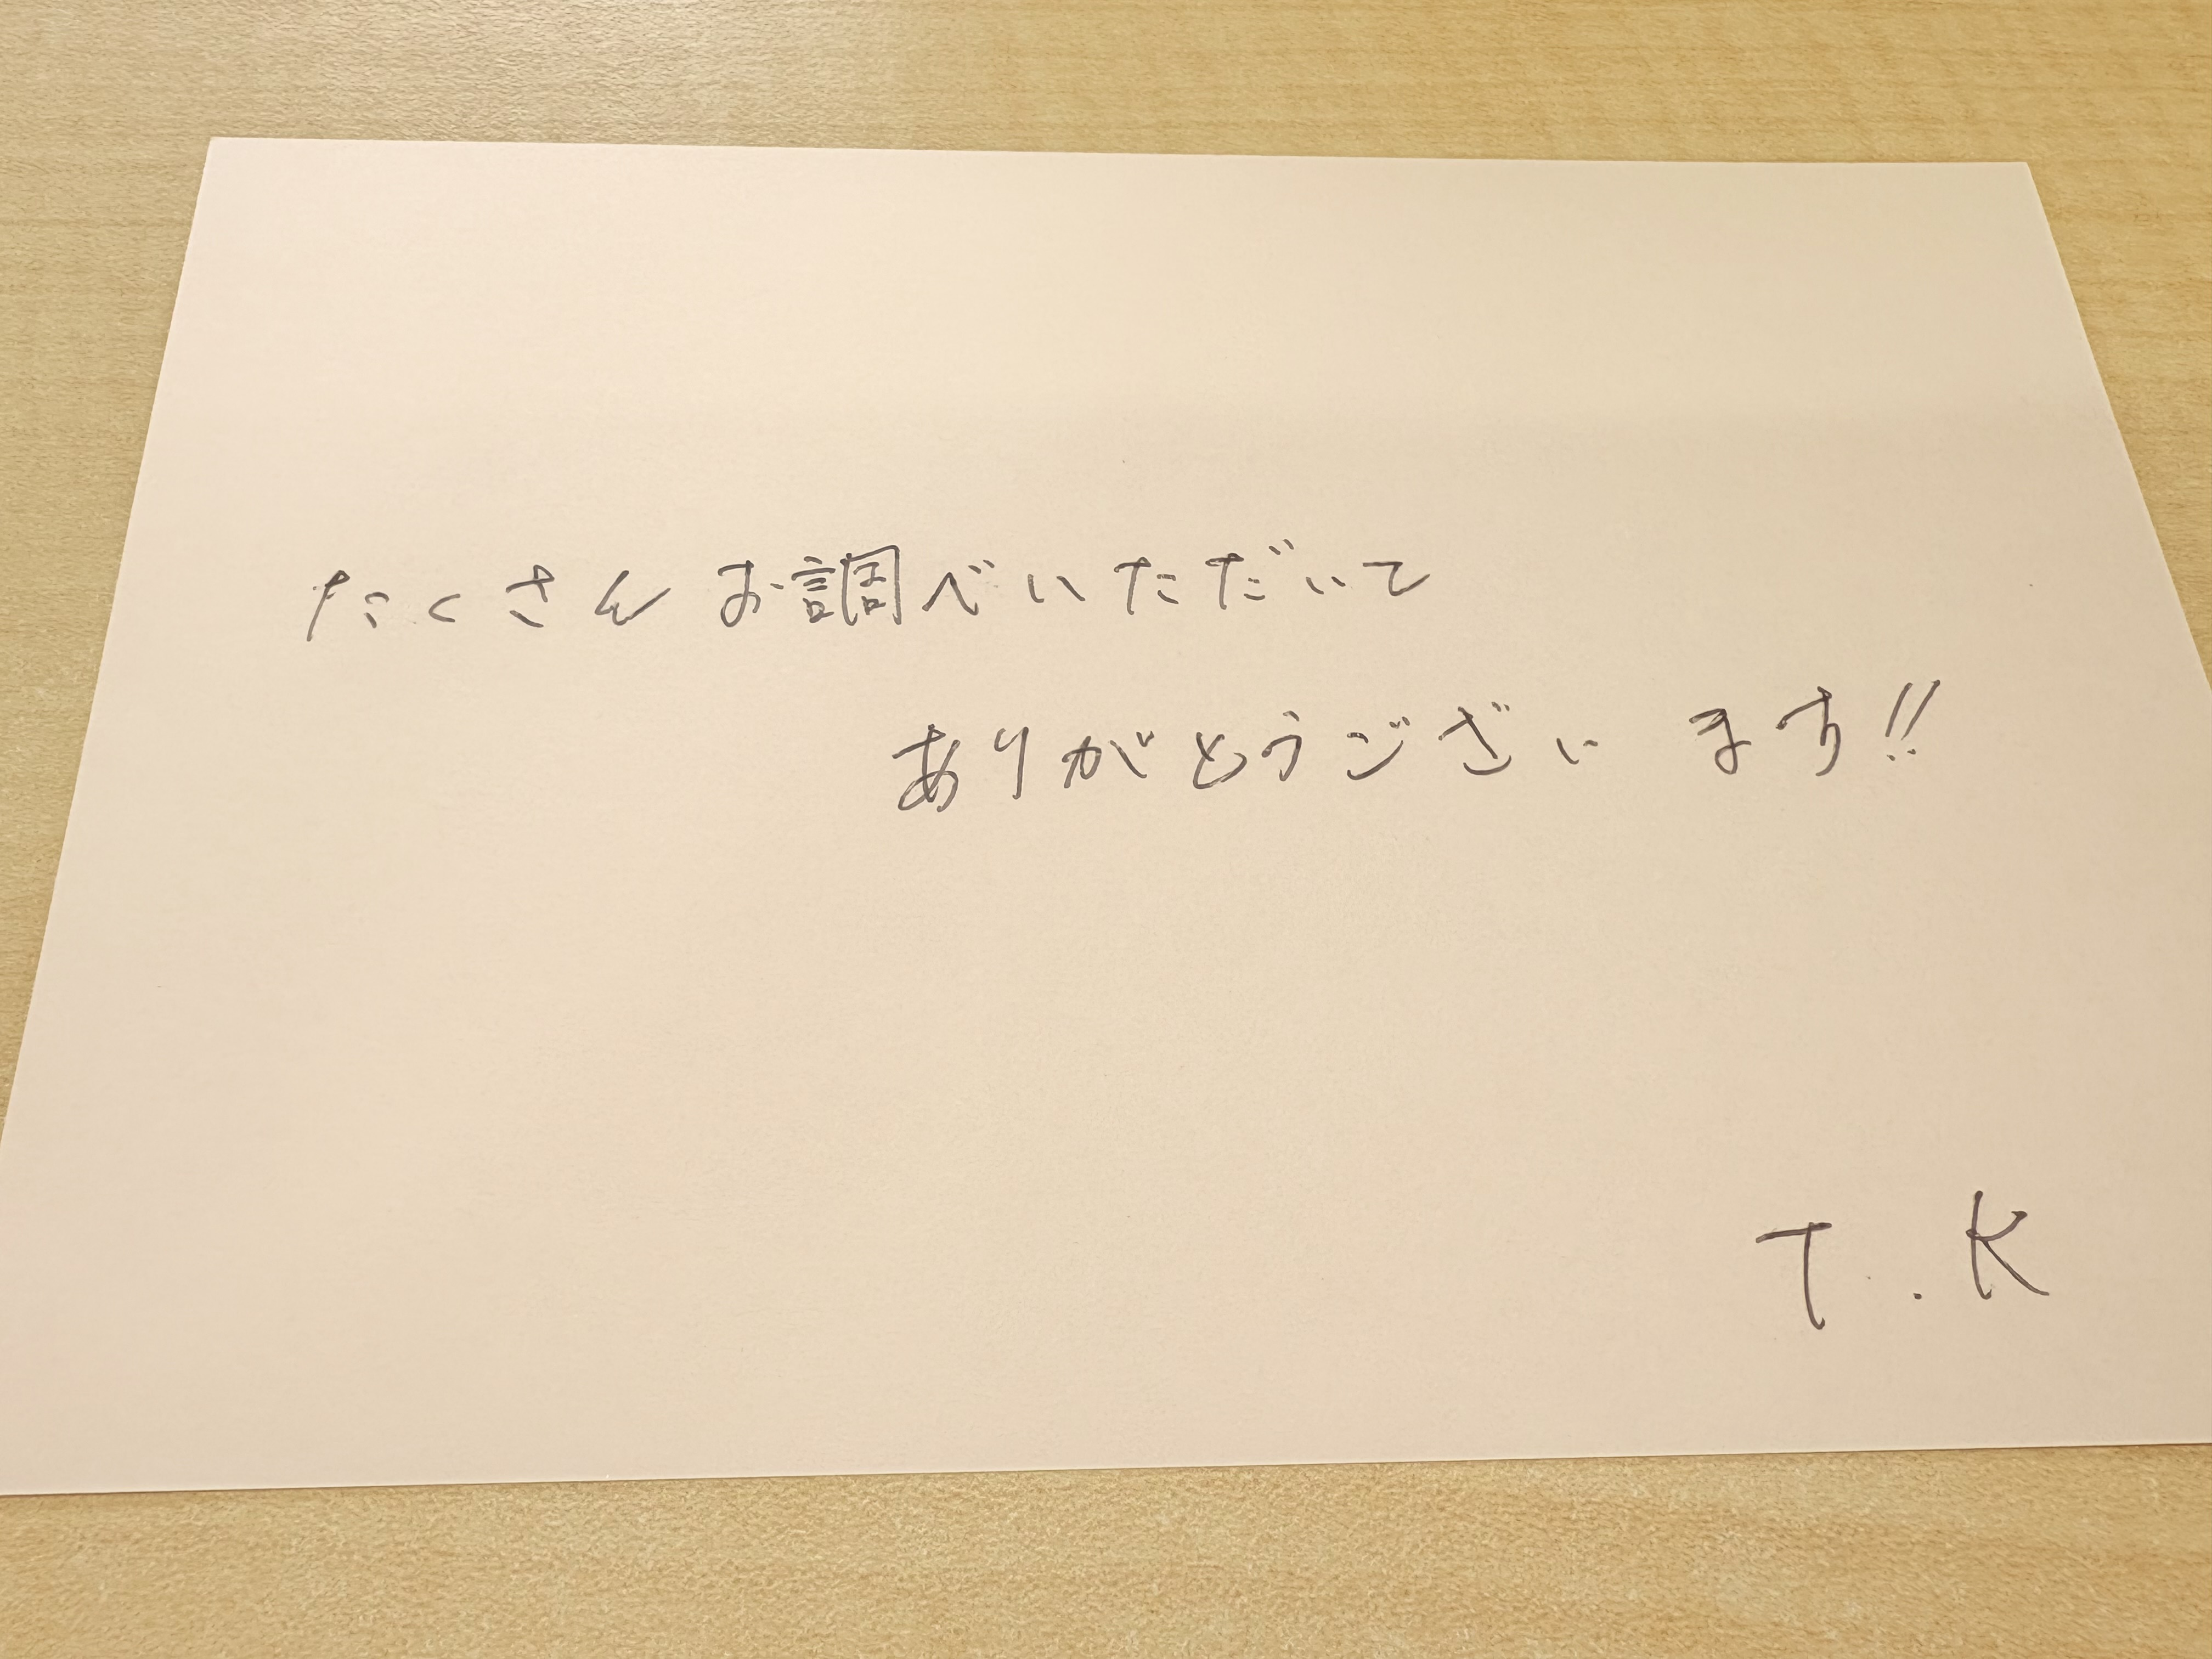 たくさんお調べいただいて
ありがとうございます!!
T.K